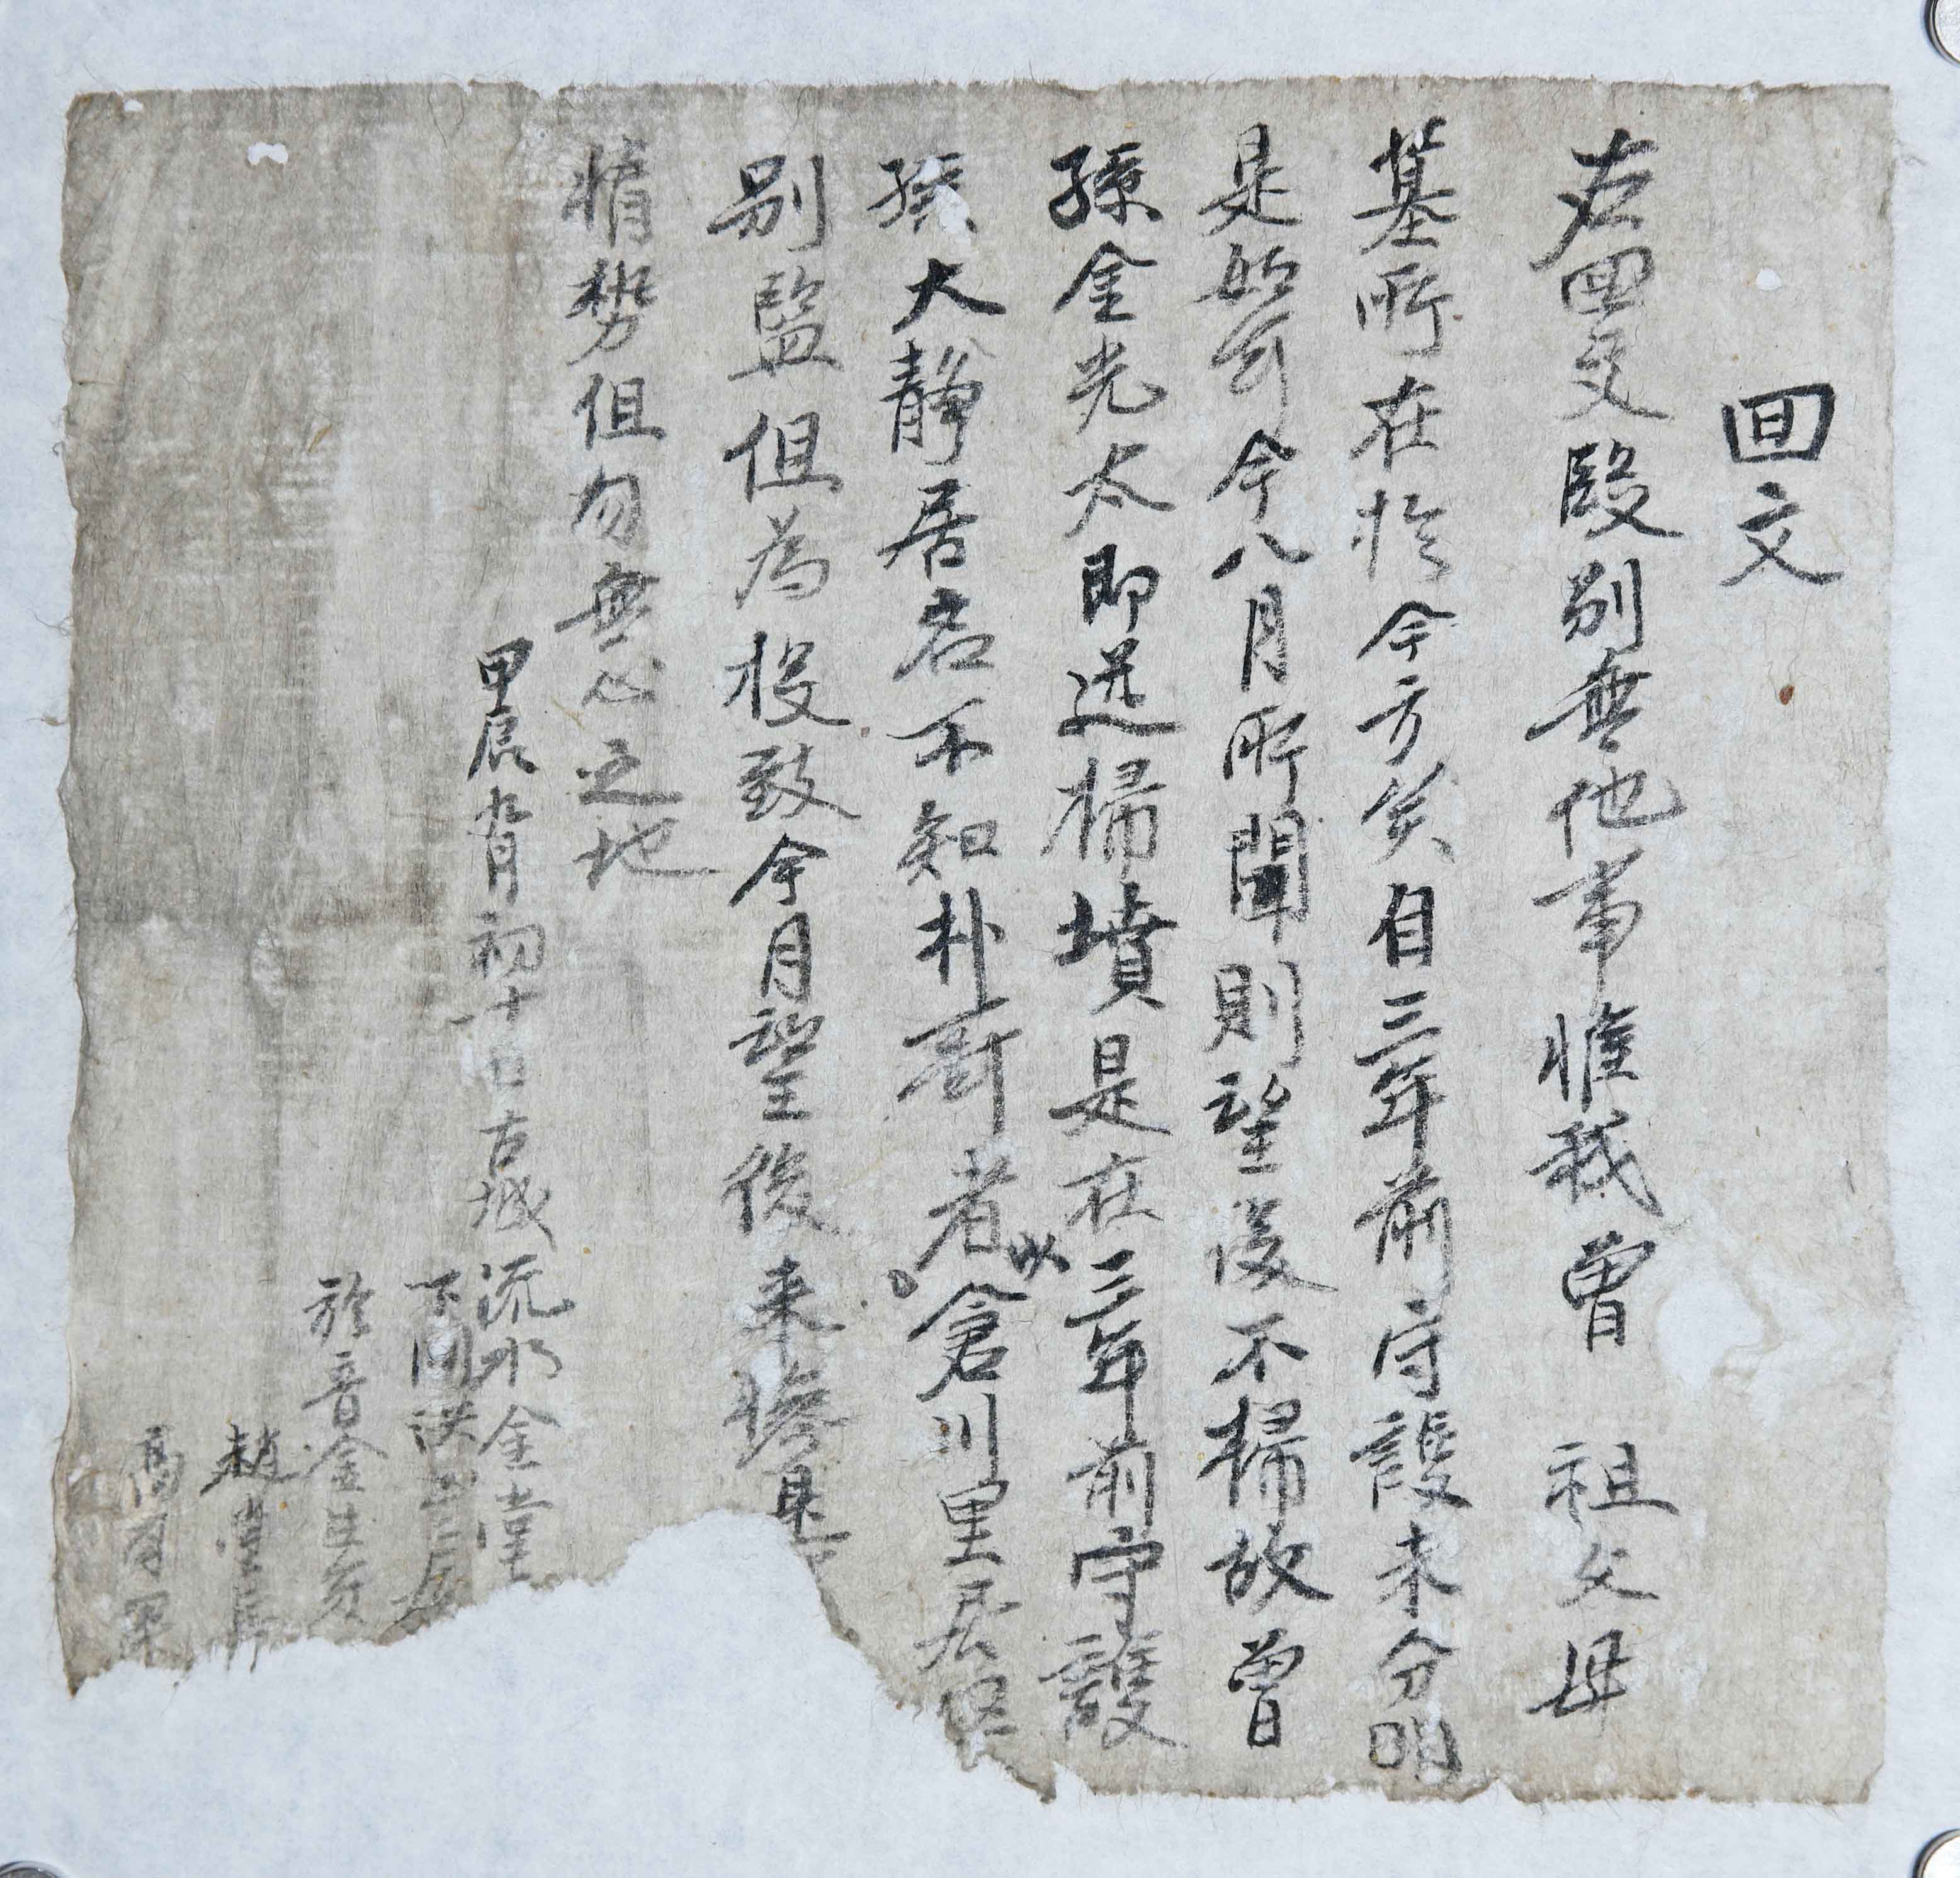 回文
右回文段別無他事惟我曾 祖父母
墓所在於今方矣自三年前守護未分明
是如可今八月所聞則望後不掃故曾
孫金光太即送掃墳是在三年前守護
孫大静居名不知朴哥者以倉川里居
別監但為投致今月望後来
情勢但勿無心之地
甲辰九月初十日古城流水金
下同洪
於音金生
趙
高